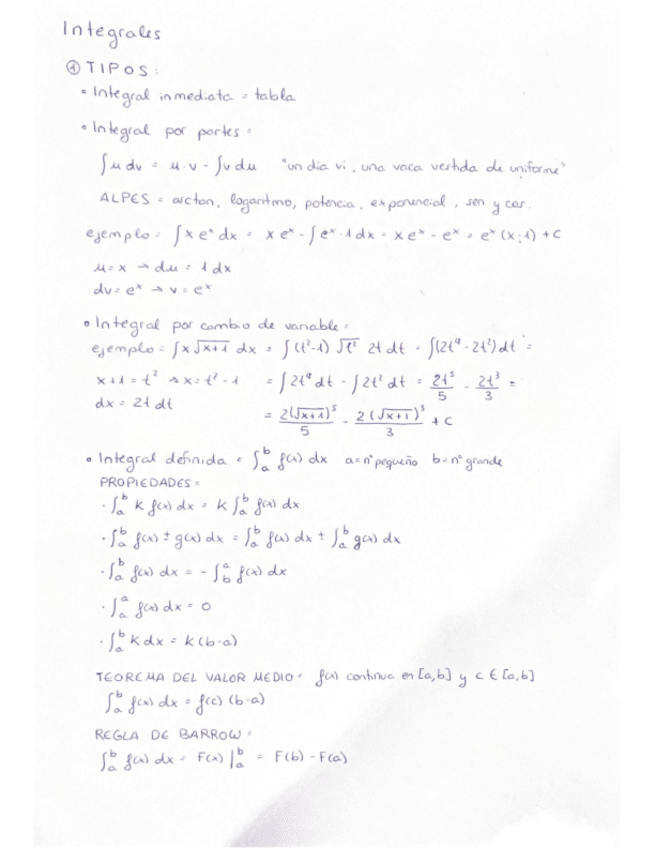 Integrales
① TIPOS:
• Integral inmediata = tabla
• Integral por partes =
∫u dv = u·v - ∫v du "un dia vi, una vaca vestida de uniforme"
ALPES = arctan, logaritmo, potencia, exponencial, sen y cos.
ejemplo = ∫x eˣ dx = x eˣ - ∫eˣ · 1 dx = x eˣ - eˣ = eˣ (x-1) + C
u = x → du = 1 dx
dv = eˣ → v = eˣ
• Integral por cambio de variable =
ejemplo = ∫x √x+1 dx = ∫(t²-1) √t² 2t dt = ∫(2t⁴ - 2t²) dt =
x+1 = t² → x = t² - 1 = ∫2t⁴ dt - ∫2t² dt = 2t⁵/5 - 2t³/3 =
dx = 2t dt
= 2(√x+1)⁵/5 - 2(√x+1)³/3 + C
• Integral definida = ∫ₐᵇ f(x) dx a = nº pequeño b = nº grande
PROPIEDADES =
· ∫ₐᵇ K f(x) dx = K ∫ₐᵇ f(x) dx
· ∫ₐᵇ f(x) ± g(x) dx = ∫ₐᵇ f(x) dx ± ∫ₐᵇ g(x) dx
· ∫ₐᵇ f(x) dx = - ∫_b^a f(x) dx
· ∫ₐᵃ f(x) dx = 0
· ∫ₐᵇ K dx = K (b-a)
TEOREMA DEL VALOR MEDIO = f(x) continua en [a,b] y c ∈ [a,b]
∫ₐᵇ f(x) dx = f(c) (b-a)
REGLA DE BARROW =
∫ₐᵇ f(x) dx = F(x) |ₐᵇ = F(b) - F(a)